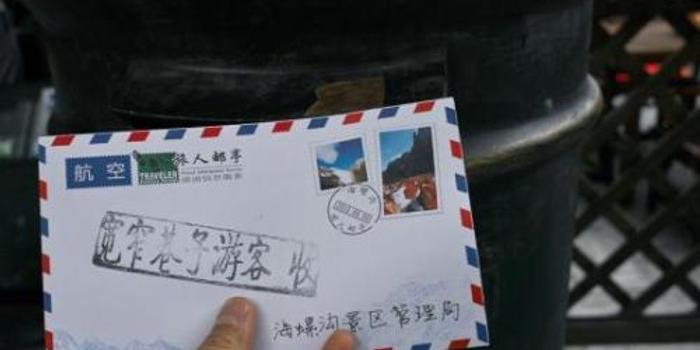 航空
TRAVELER
旅人邮亭
宽窄巷子游客 收
海螺沟景区管理局